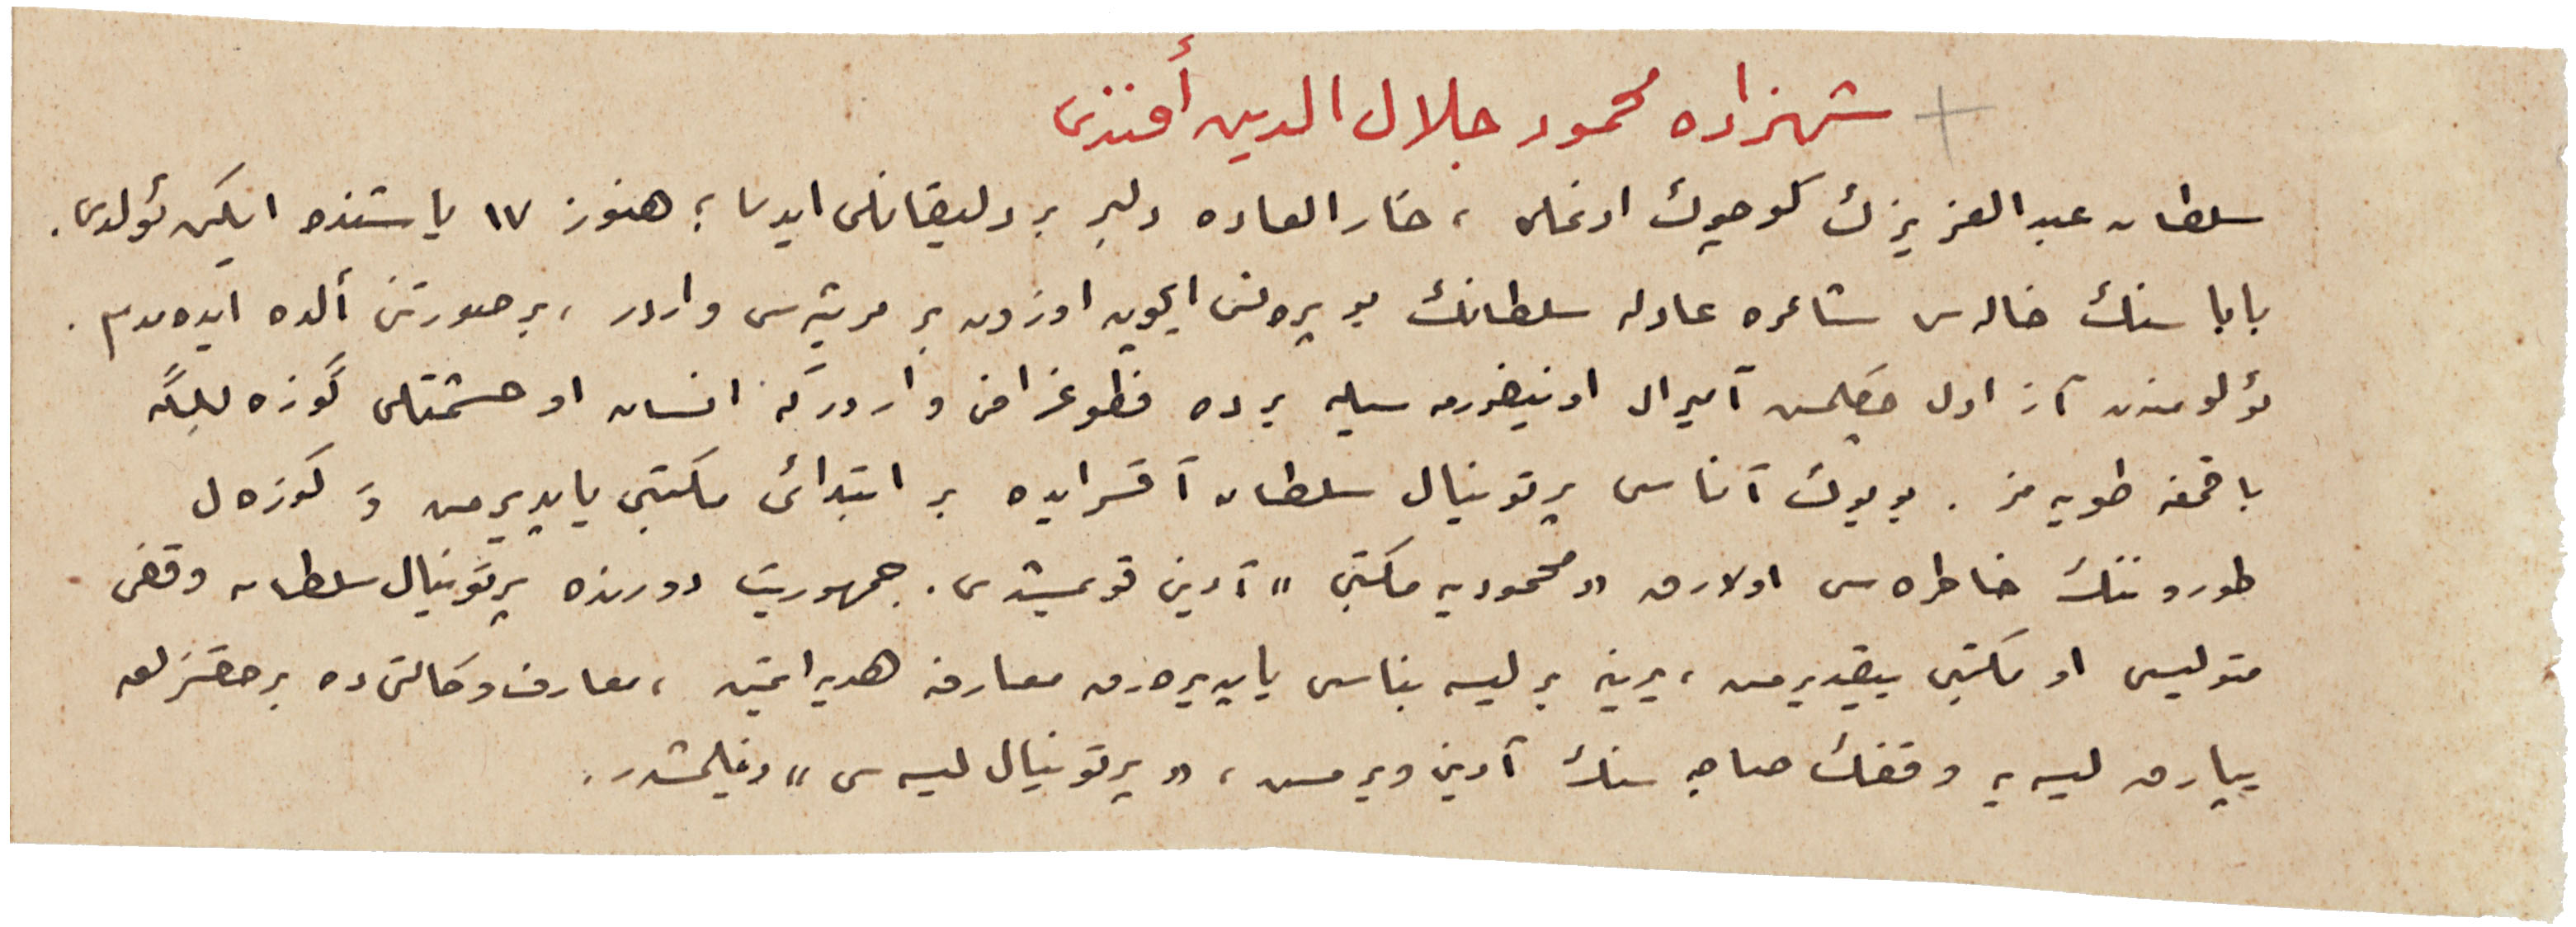 شهزاده محمود جلال الدين أفندى
سلطان عبدالعزيزك كوچوك اوغلى ، خارالعاده دلبر بر دليقانلى ايدى ؛ هنوز ١٧ ياشنده ايكن ئولدى .
باباسنك خاله سى شاعره عادله سلطانك بو پرنس ايچون اوزون بر مرثيه سى واردر ، بر صورتنى ألده ايده مدم .
ئولومندن آز اول چكلمش آميرال اونيفورمه سيله بر ده فطوغرافى واردركه انسان او حشمتلى گوزه للگه
باقمغه طويه مز . بويوك آناسى پرتونيال سلطان آقسرايده بر ابتدائى مكتبى ياپديرمش وَ كوزه ل
طورونّنك خاطره سى اولارق « محموديه مكتبى » آدينى قويمشدى . جمهوريت دورنده پرتونيال سلطان وقفى
متوليسى او مكتبى ييقديرمش ، يرينه بر ليسه بناسى ياپديره رق معارفه هديه ايتمش ، معارف وكالتى ده بر حقسزلق
ياپارق ليسه يه وقفك صاحبه سنك آدينى ويرمش ، « پرتونيال ليسه سى » دينلمشدر .